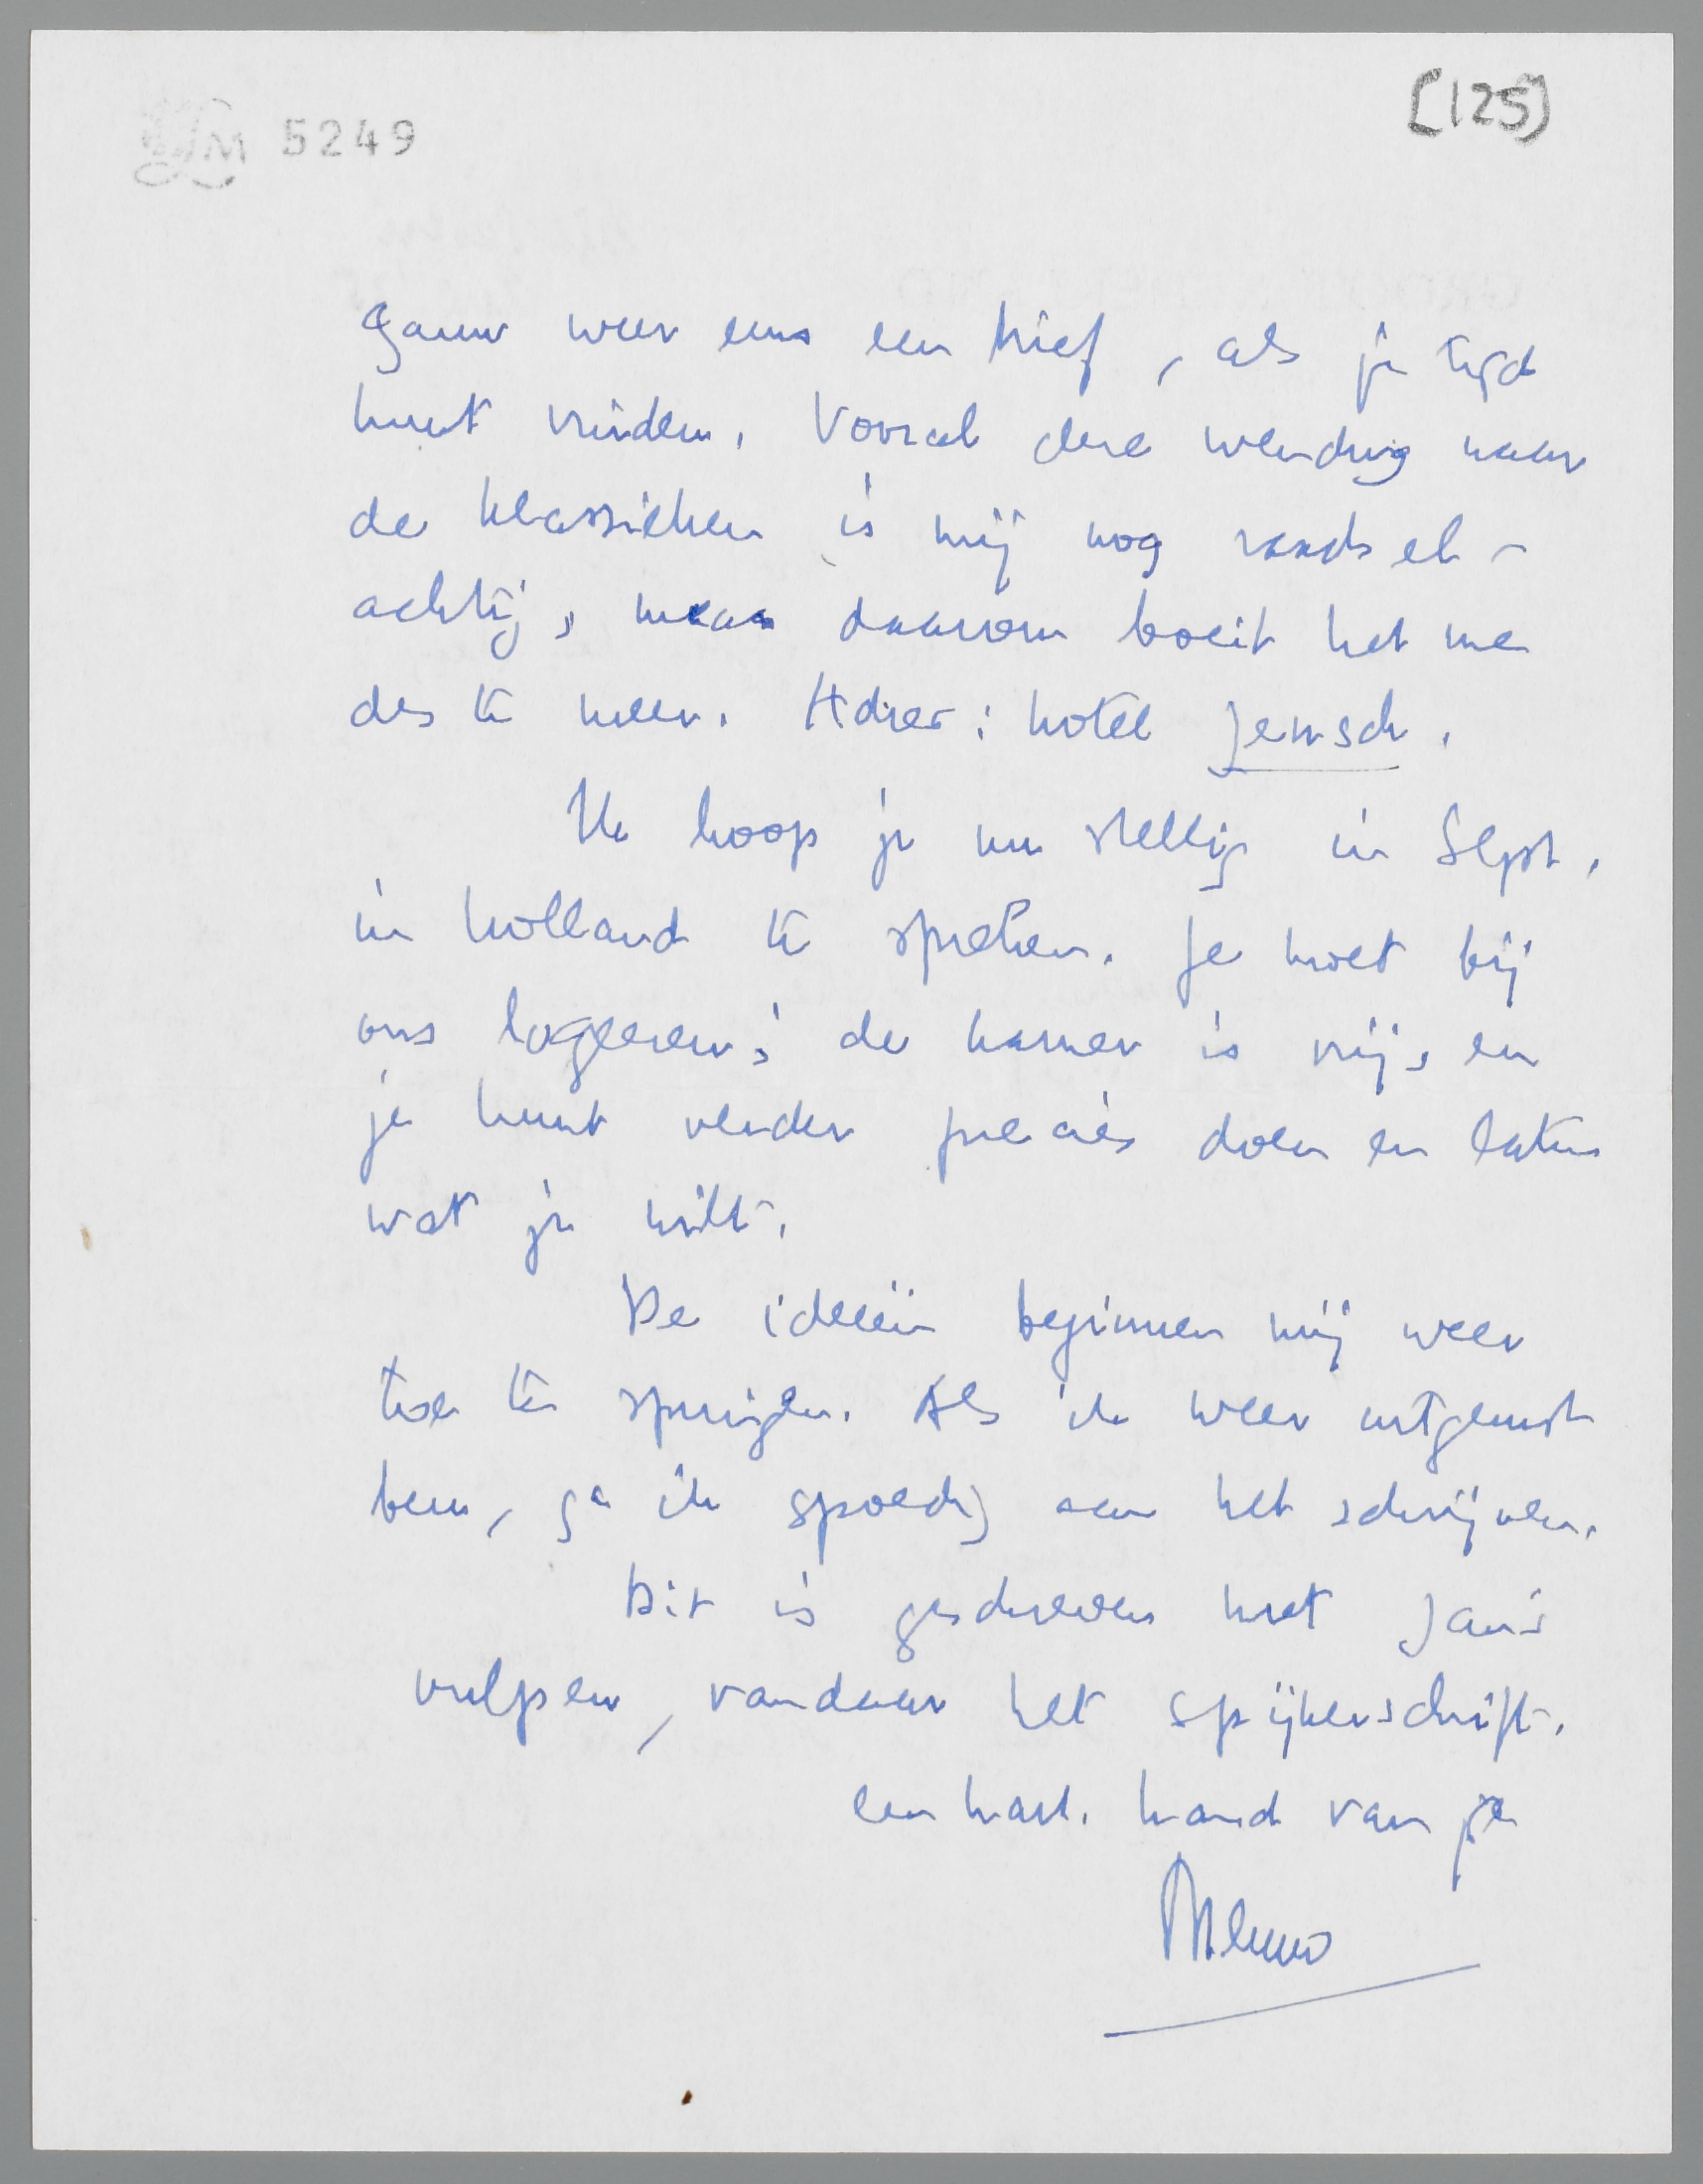 LM 5249
[125]
gauw weer eens een brief, als je tijd
kunt vinden. Vooral deze wending naar
de klassieken is mij nog raadsel-
achtig, maar daarom boeit het me
des te meer. Adres: hotel Jensch.
Ik hoop je nu stellig in Sept.
in Holland te spreken. Je moet bij
ons logeeren; de kamer is vrij, en
je kunt verder precies doen en laten
wat je wilt.
De ideeën beginnen mij weer
toe te springen. Als ik weer uitgerust
ben, ga ik spoedig aan het schrijven.
Dit is geschreven met Jan's
vulpen, vandaar het spijkerschrift.
een hart. hand van je
Menno